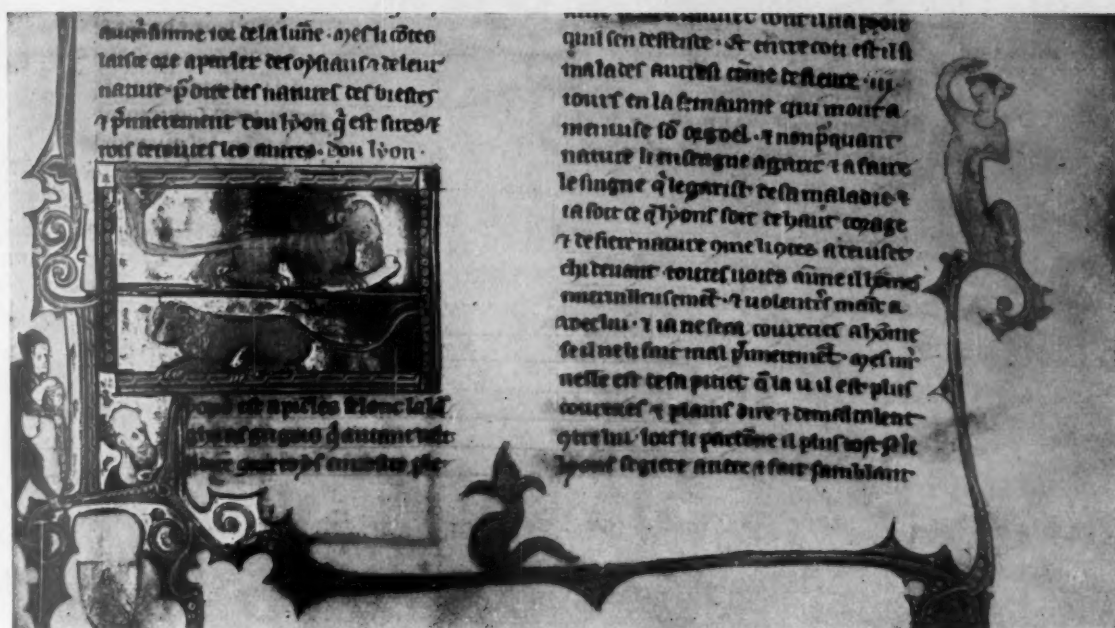 de la lune · li cõtes
laisce ore aparler des oysiaus ⁊ de leur
nature · p̃ dire des natures des biestes
⁊ p̃mierement dou lyon q̃ est sires ⁊
rois de toutes les autres · dou lyon ·
est apieles selonc la lã
grigois q̃ autant vaut
roys
il na pooir
quil sen deffende · Et entre cou est il si
malades autresi cõme de fieure · iij
iours en la semainne qui mout a
menuise sõ orgoel · ⁊ nonp̃quant
nature li enseigne agarir ⁊ a faire
le singne q̃ le garist de sa maladie ⁊
ia soit ce q̃ lyons soit de haut corage
⁊ de fiere nature 9me li 9tes a deuiset
chi deuant toutes uoies aĩme il homes
merueilleusemẽt · ⁊ uolentrs maint a
⁊ ia ne sera courecies a hõme
se il ne li fait mal p̃mieremẽt
uelle est de sa pitiet q̃ la u il est plus
courecies ⁊ plains dire ⁊ de maltalent
9tre lui · lors li pardõne il plus tost
se giete a fait samblant